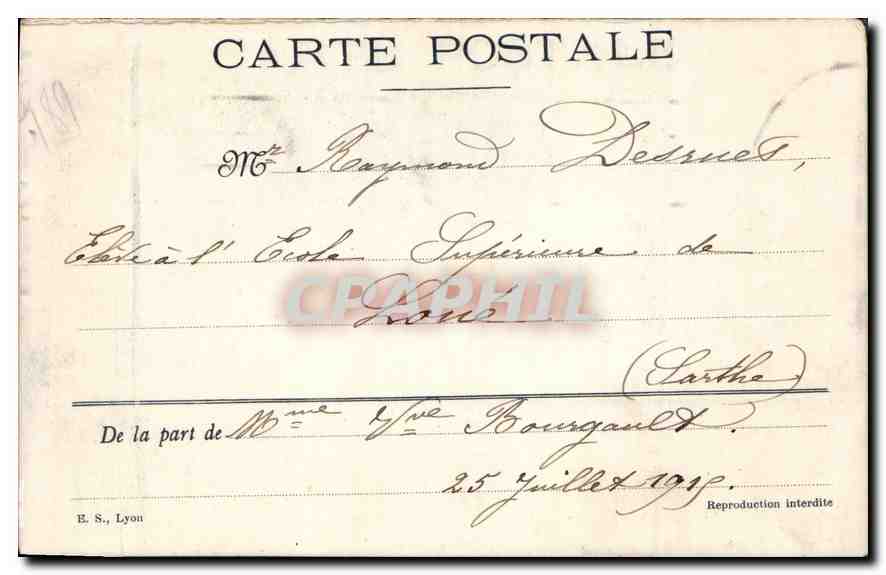 CARTE POSTALE
Mr Raymond Desrues,
Elève à l'Ecole Supérieure de
Loué
CPAPHIL
(Sarthe)
De la part de Mme Vve Bourgault.
25 Juillet 1915.
Reproduction interdite
E. S., Lyon